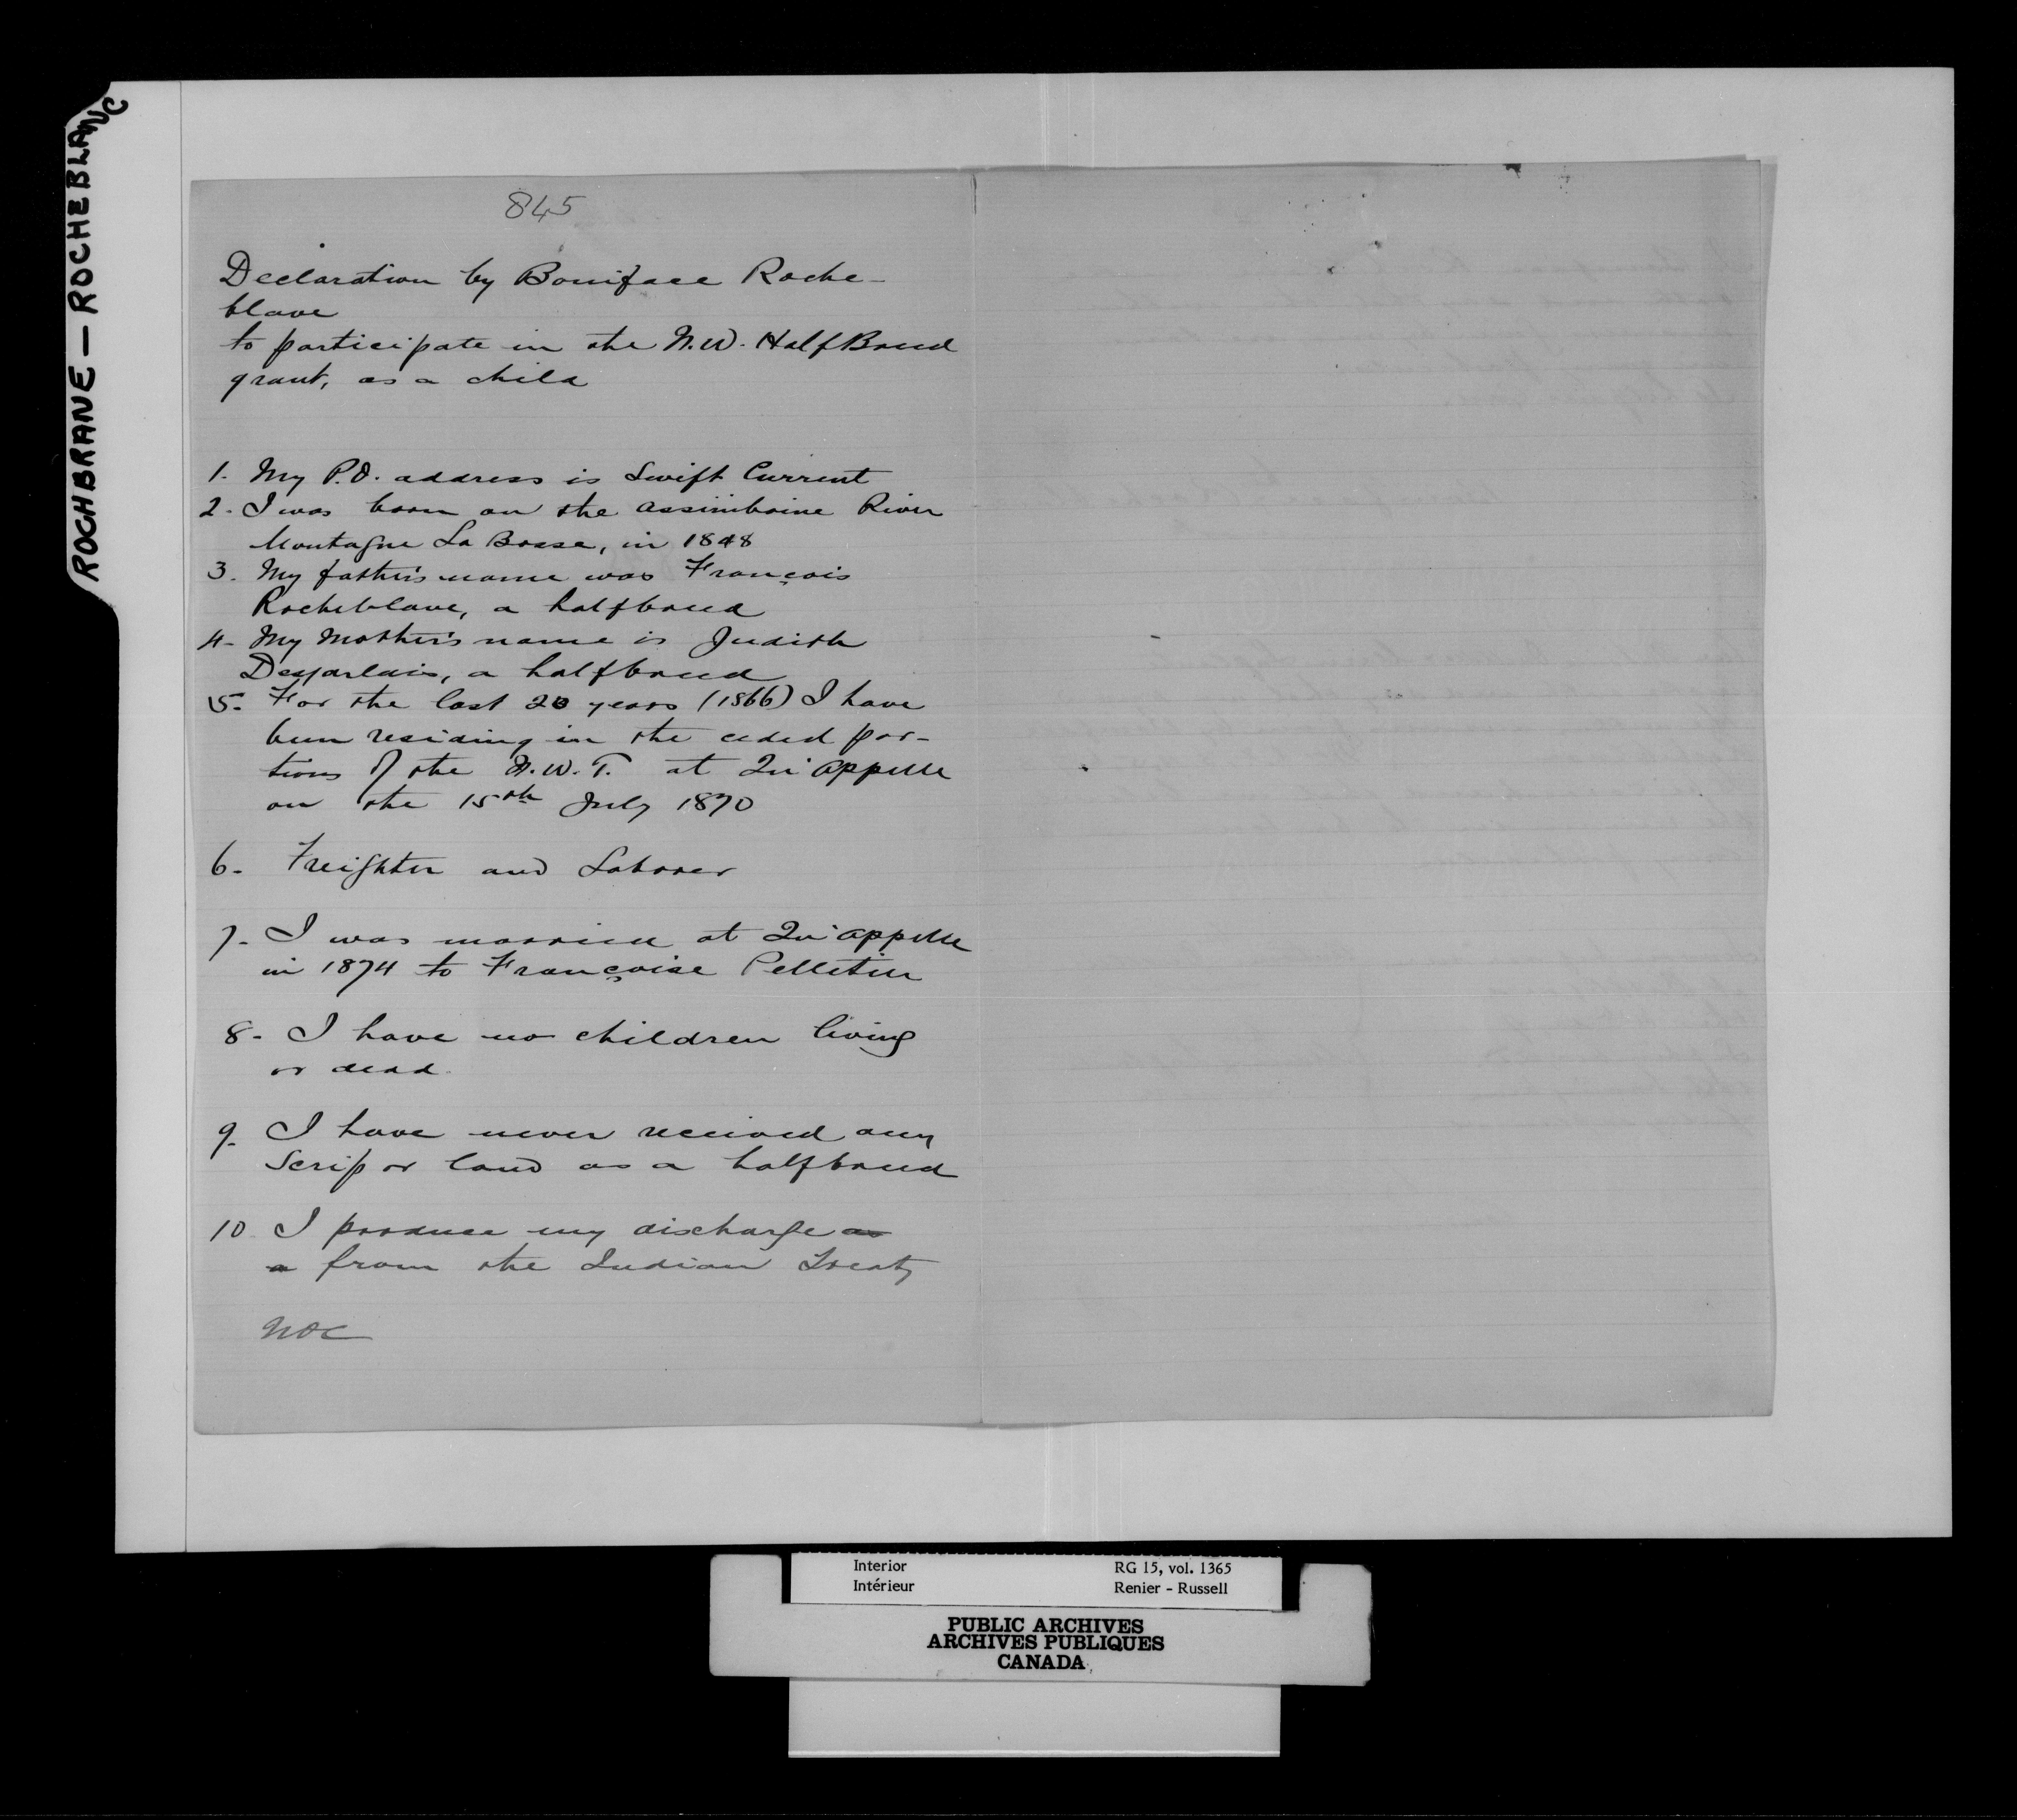 ROCHBRANE — ROCHEBLANC
845
Declaration by Boniface Roche-
blave
to participate in the N.W. Half Breed
grant, as a child
1. My P.O. address is Swift Current
2. I was born on the Assiniboine River
Montagne La Bosse, in 1848
3. My father's name was François
Rocheblave, a halfbreed
4. My Mother's name is Judith
Desjarlais, a halfbreed
5. For the last 20 years (1866) I have
been residing in the ceded por-
tions of the N.W.T. at Qu'Appelle
on the 15th July 1870
6. Freighter and Laborer
7. I was married at Qu'Appelle
in 1874 to Françoise Pelletier
8. I have no children living
or dead.
9. I have never received any
Scrip or land as a halfbreed
10 I produce my discharge as
a from the Indian Treaty
Interior RG 15, vol. 1365
Intérieur Renier - Russell
PUBLIC ARCHIVES
ARCHIVES PUBLIQUES
CANADA